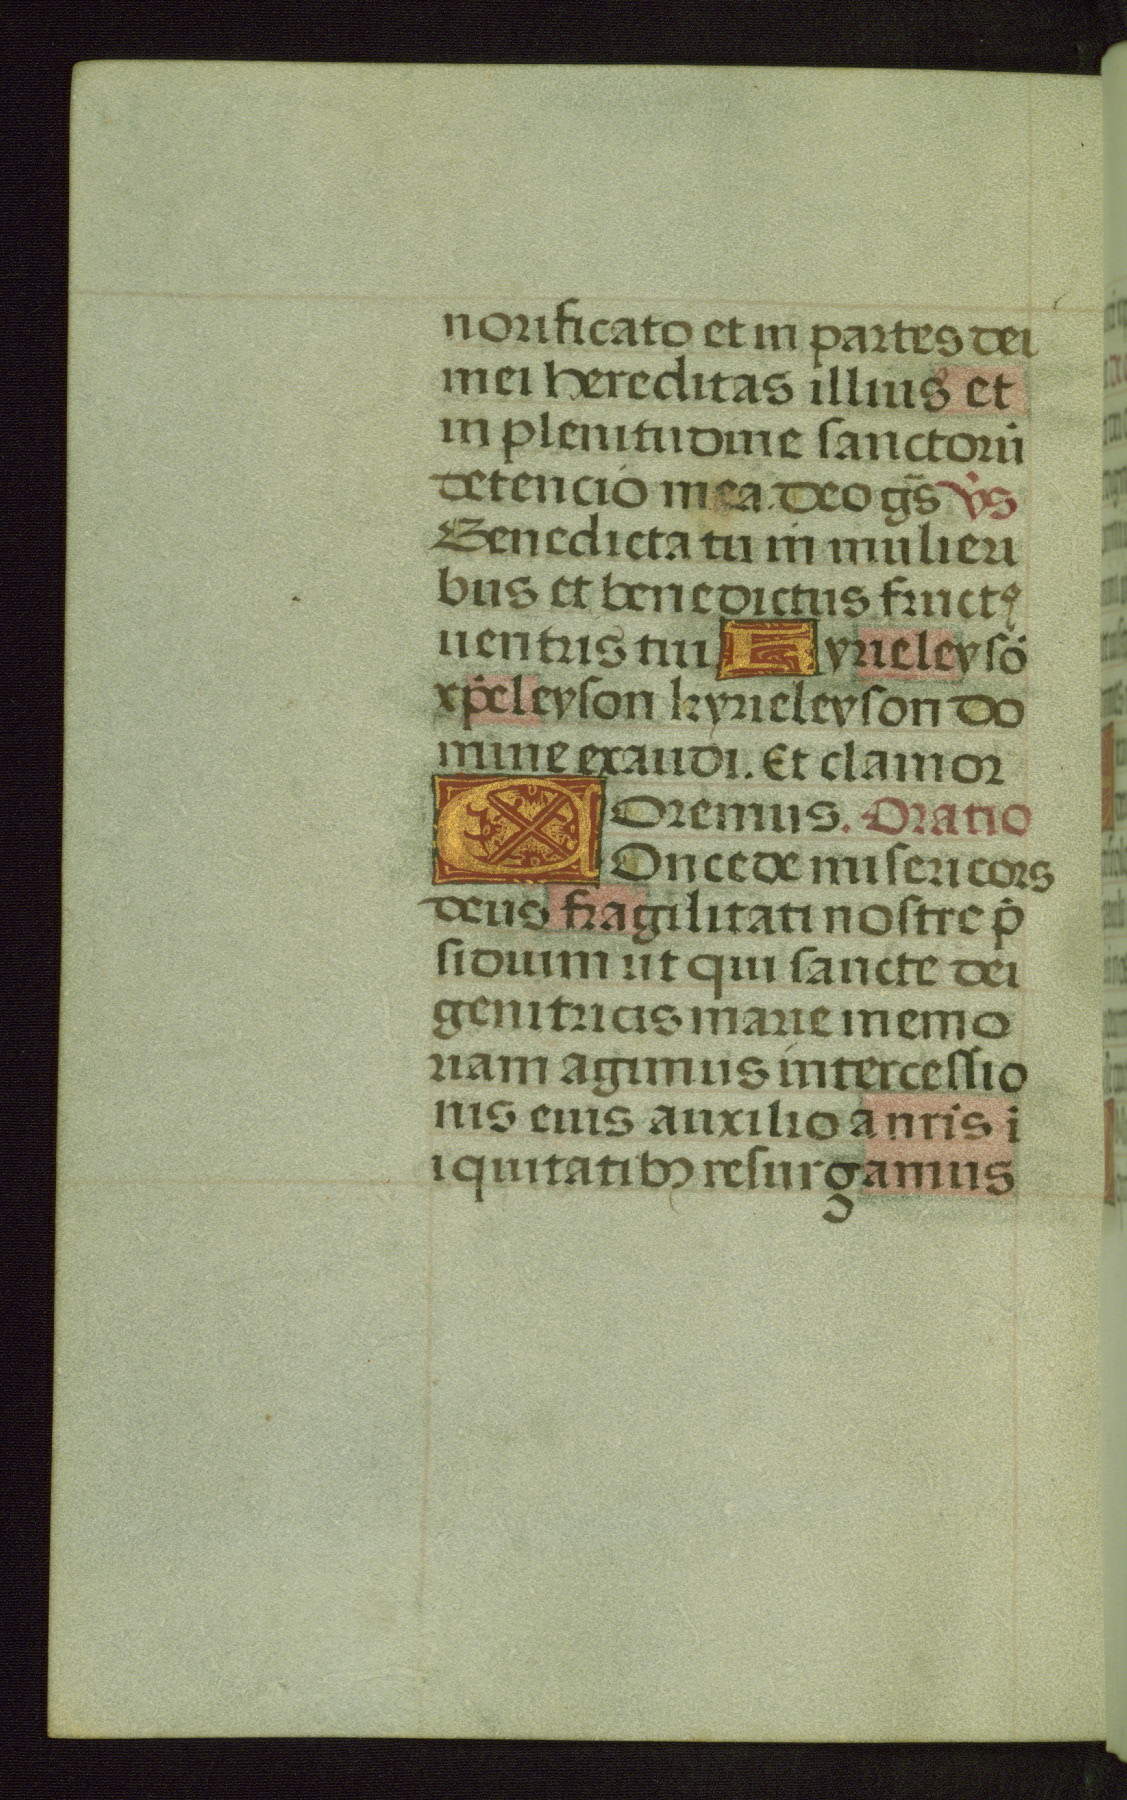 norificato et in partes dei
mei hereditas illius et
in plenitudine sanctoru̅
detencio mea. deo gr̅s v̇s
Benedicta tu in mulieri
bus et benedictus fructꝰ
uentris tui Kyrieleysō
xp̄eleyson kyrieleyson do
mine exaudi. Et clamor
Oremus. Oratio
Concede misericors
deus fragilitati nostre p̄
sidium ut qui sancte dei
genitricis marie memo
riam agimus intercessio
nis eius auxilio a nr̄is i
iquitatibꝫ resurgamus